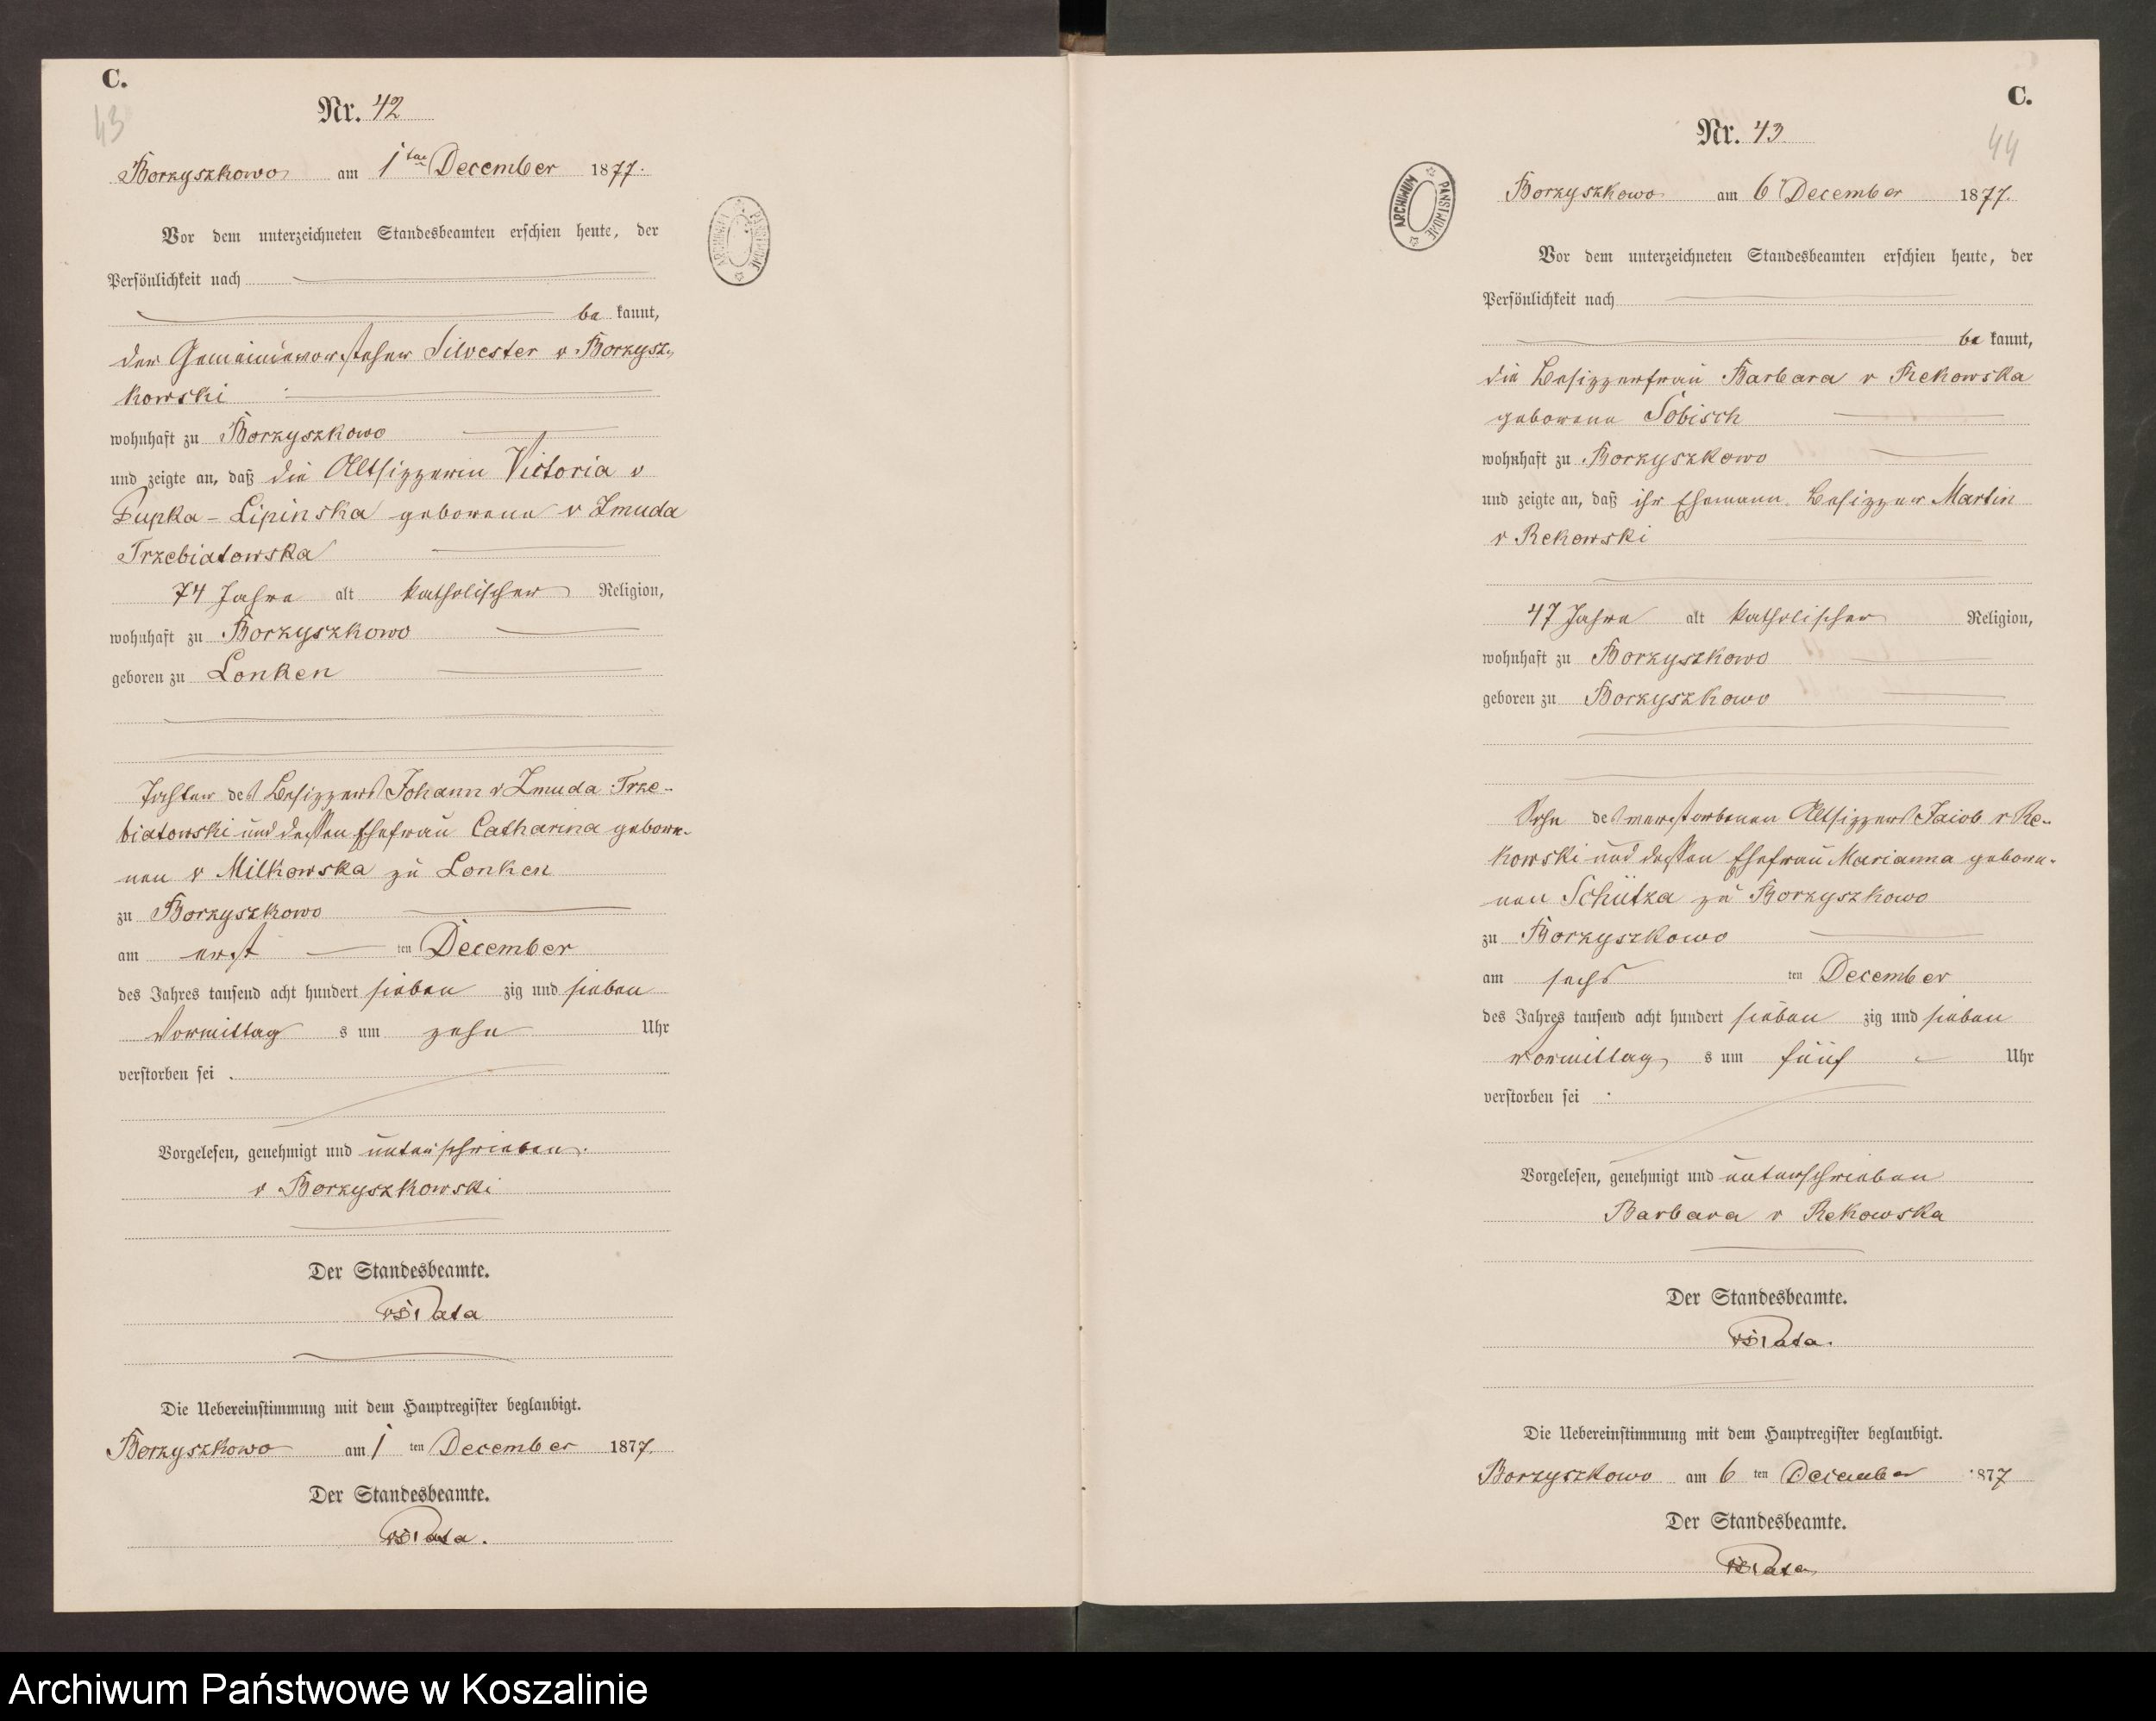 C.
43
Nr. 42
Borzyszkowo am 1ten December 1877.
Vor dem unterzeichneten Standesbeamten erschien heute, der
Persönlichkeit nach
be kannt,
der Gemeindevorsteher Silvester v Borzysz-
kowski
wohnhaft zu Borzyszkowo
und zeigte an, daß die Altsitzerin Victoria v
Pupka-Lipinska geborene v Zmuda
Trzebiatowska
74 Jahre alt katholischer Religion,
wohnhaft zu Borzyszkowo
geboren zu Lonken
Tochter des Besitzers Johann v Zmuda Trze-
biatowski und dessen Ehefrau Catharina gebore-
nen v Milkowska zu Lonken
zu Borzyszkowo
am erst ten December
des Jahres tausend acht hundert sieben zig und sieben
Vormittag s um zehn Uhr
verstorben sei .
Vorgelesen, genehmigt und unterschrieben.
v Borzyszkowski
Der Standesbeamte.
Die Uebereinstimmung mit dem Hauptregister beglaubigt.
Borzyszkowo am 1 ten December 1877.
Der Standesbeamte.
ARCHIWUM PAŃSTWOWE
C.
44
Nr. 43
Borzyszkowo am 6 December 1877.
Vor dem unterzeichneten Standesbeamten erschien heute, der
Persönlichkeit nach
be kannt,
die Besitzerfrau Barbara v Rekowska
geborene Sobisch
wohnhaft zu Borzyszkowo
und zeigte an, daß ihr Ehemann Besitzer Martin
v Rekowski
47 Jahre alt katholischer Religion,
wohnhaft zu Borzyszkowo
geboren zu Borzyszkowo
Sohn des verstorbenen Altsitzers Jacob v Re-
kowski und dessen Ehefrau Marianna gebore-
nen Schütza zu Borzyszkowo
zu Borzyszkowo
am sechs ten December
des Jahres tausend acht hundert sieben zig und sieben
Vormittag s um fünf Uhr
verstorben sei .
Vorgelesen, genehmigt und unterschrieben
Barbara v Rekowska
Der Standesbeamte.
Die Uebereinstimmung mit dem Hauptregister beglaubigt.
Borzyszkowo am 6 ten December 1877
Der Standesbeamte.
ARCHIWUM PAŃSTWOWE
Archiwum Państwowe w Koszalinie